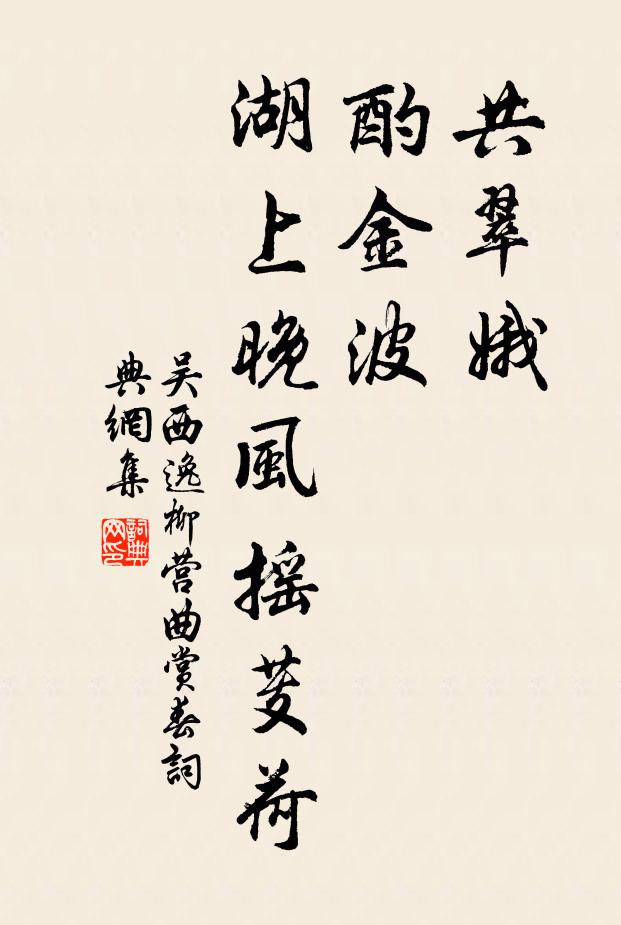 共翠娥
酌金波
湖上晚風搖芰荷
吴西逸柳营曲賞春詞
典網集
詞典
网印